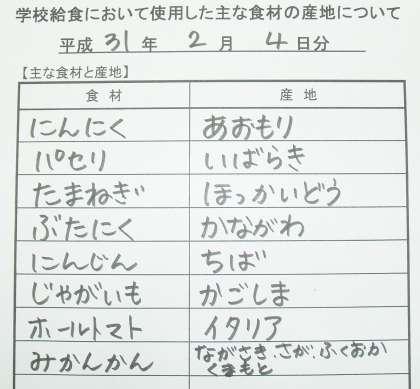 学校給食において使用した主な食材の産地について
平成 31 年 2 月 4 日分
【主な食材と産地】
食材 産地
にんにく あおもり
パセリ いばらき
たまねぎ ほっかいどう
ぶたにく かながわ
にんじん ちば
じゃがいも かごしま
ホールトマト イタリア
みかんかん ながさき.さが.ふくおか
くまもと